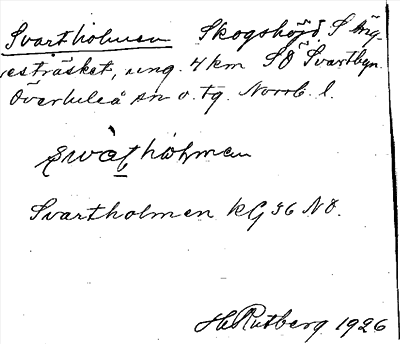 Svartholmen Skogshöjd S Äng-
esträsket, ung. 4 km SÖ Svartbyn.
Överluleå sn o. tg. Norrb. l.
Svartholmen kG 36 NO.
H. Rutberg 1926